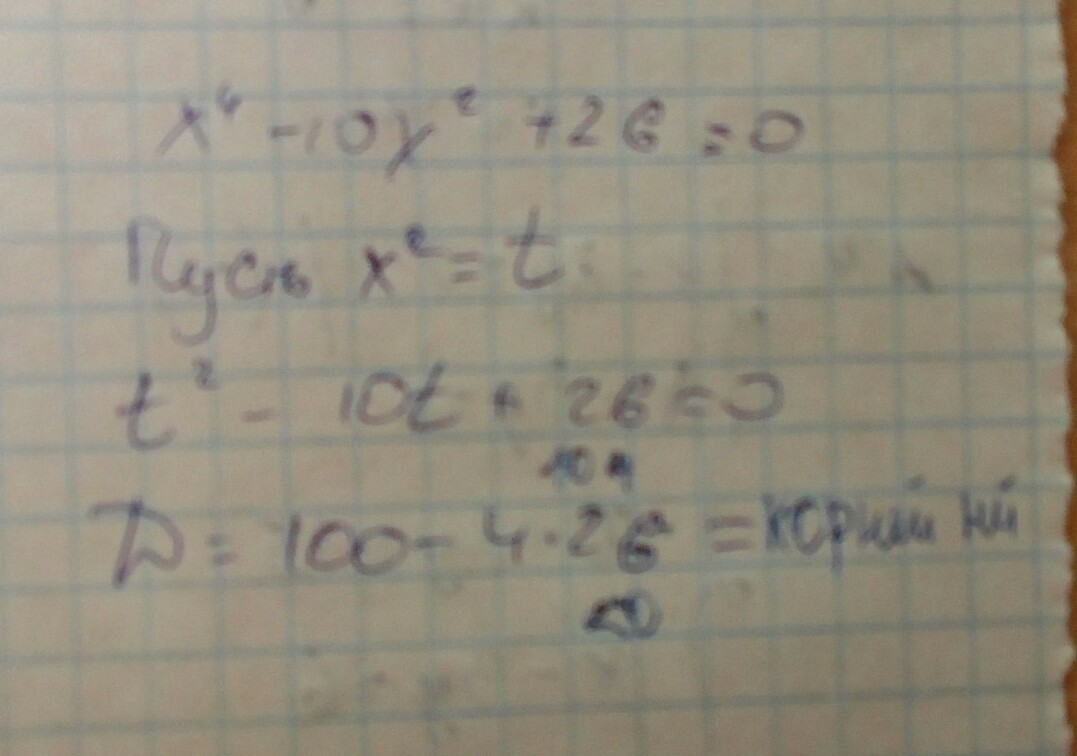 x⁴ - 10x² + 26 = 0
Пусть x² = t
t² - 10t + 26 = 0
104
D = 100 - 4·26 = корней
<0